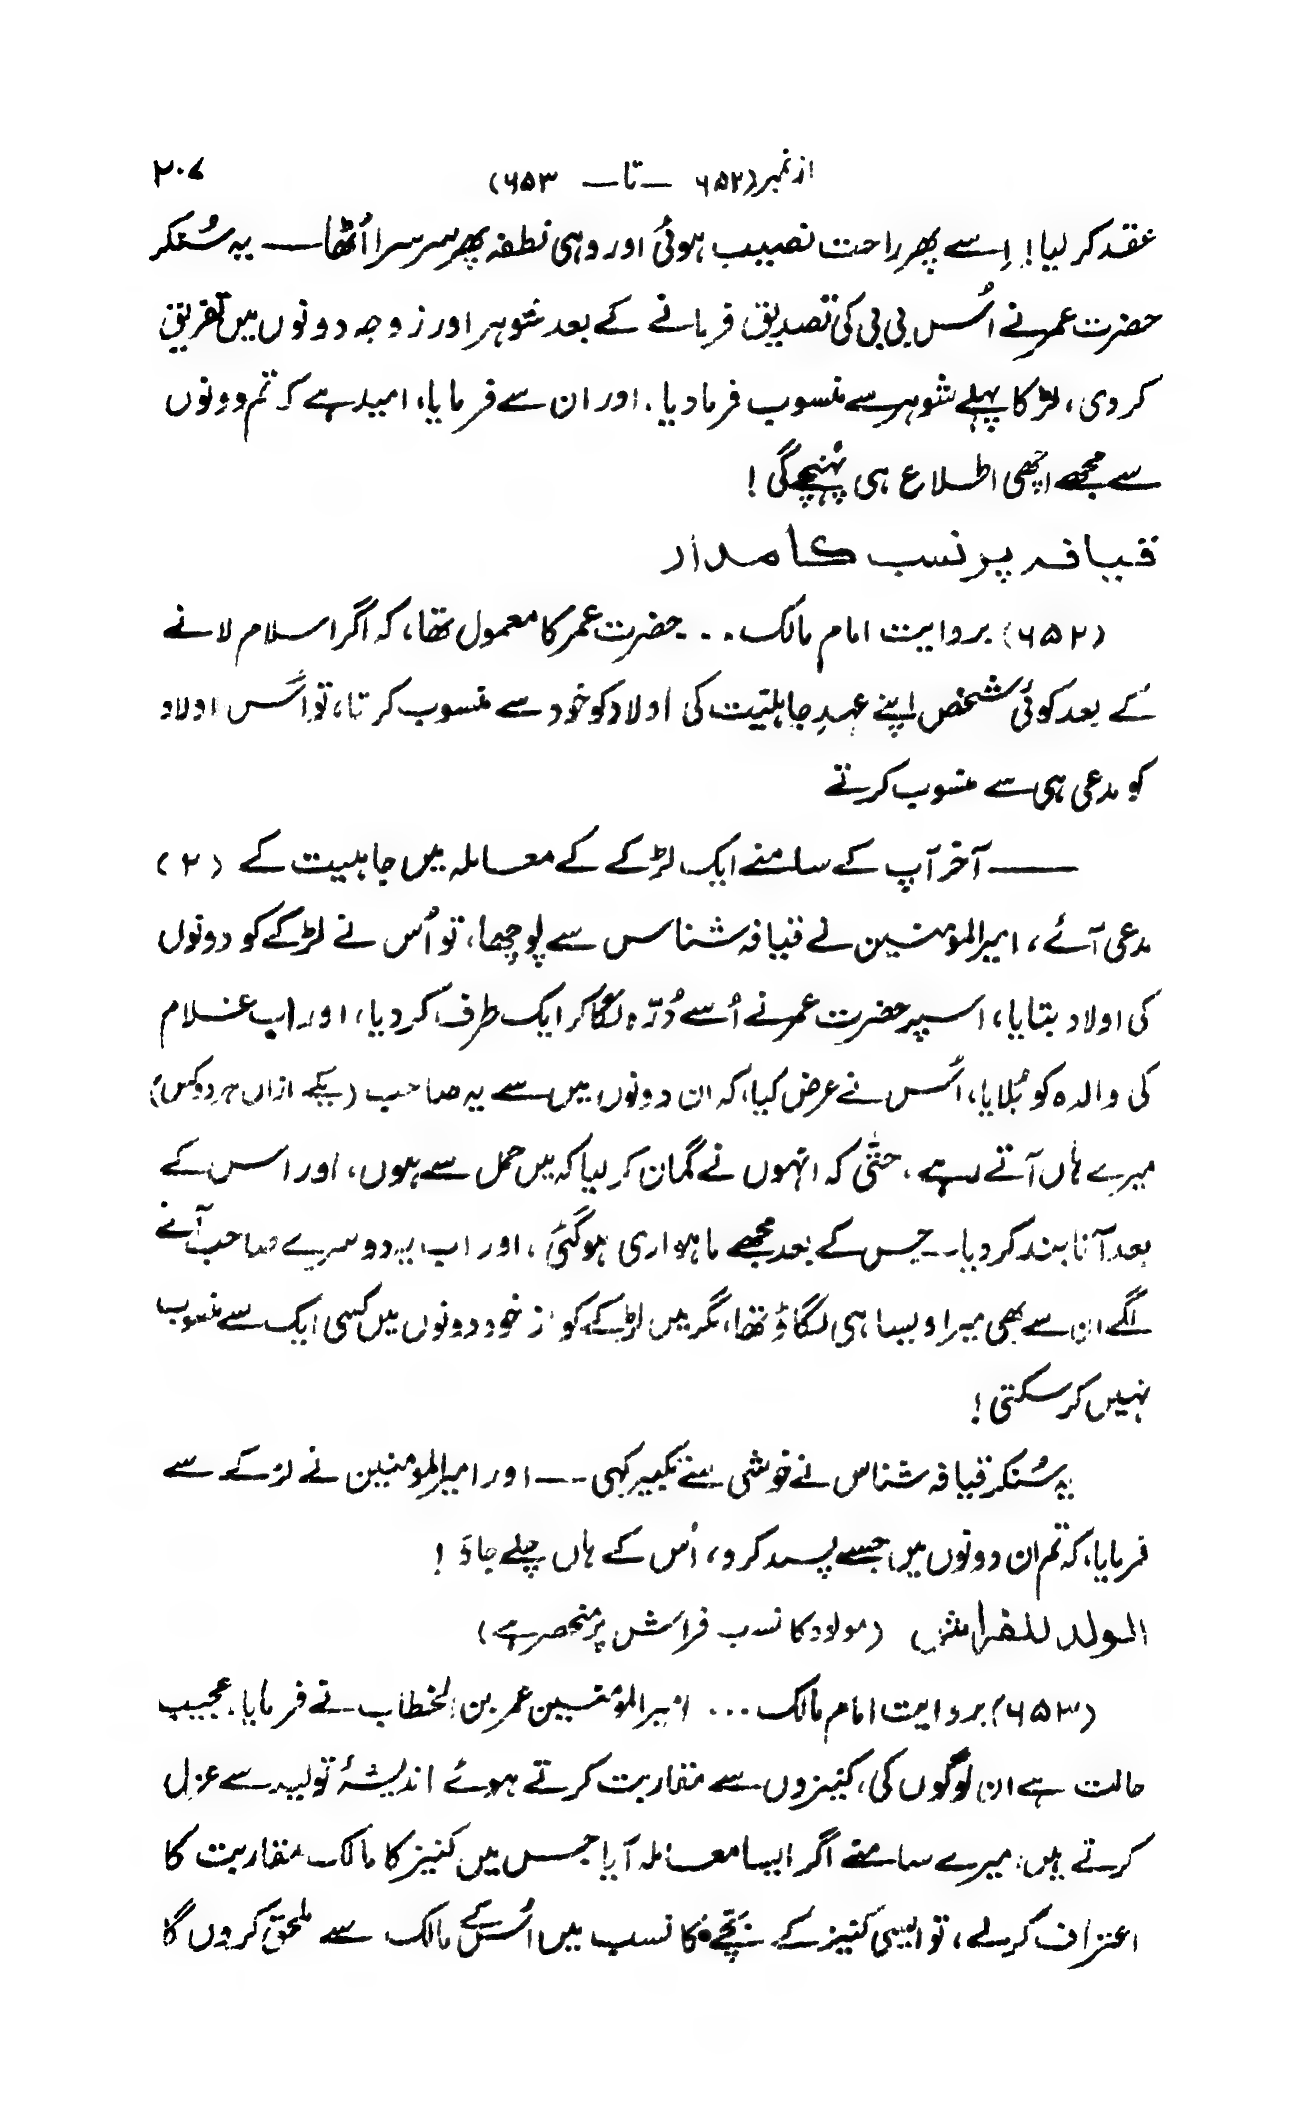 از نمبر (۶۵۲ — تا — ۶۵۳) ۲۰۷
عقد کر لیا! اِسے پھر راحت نصیب ہوئی اور وہی نطفہ پھر سرسرا اُٹھا — یہ سُنکر
حضرت عمر نے اُس بی بی کی تصدیق فرمانے کے بعد شوہر اور زوجہ دونوں میں تفریق
کر دی، لڑکا پہلے شوہر سے منسوب فرما دیا. اور ان سے فرمایا، امید ہے کہ تم دونوں
سے مجھے اچھی اطلاع ہی پہُنچے گی!
قیافہ پر نسب کا مدار
(۶۵۲) بروایت امام مالک ... حضرت عمر کا معمول تھا، کہ اگر اسلام لانے
کے بعد کوئی شخص اپنے عہدِ جاہلیّت کی اولاد کو خود سے منسوب کرتا، تو اُس اولاد
کو مدعی ہی سے منسوب کرتے
—— آخر آپ کے سامنے ایک لڑکے کے معاملہ میں جاہلیت کے (۲)
مدعی آئے، امیرالمؤمنین نے قیافہ شناس سے پوچھا، تو اُس نے لڑکے کو دونوں
کی اولاد بتایا، اسپر حضرت عمر نے اُسے دُرّہ لگا کر ایک طرف کر دیا، اور اب غلام
کی والدہ کو بُلایا، اُس نے عرض کیا، کہ ان دونوں میں سے یہ صاحب (یکے ازاں ہر دو کس)
میرے ہاں آتے رہے. حتّٰی کہ انہوں نے گمان کر لیا کہ میں حمل سے ہوں، اور اس کے
بعد آنا بند کر دیا۔ جس کے بعد مجھے ماہواری ہو گئی، اور اب یہ دوسرے صاحب آنے
لگے ان سے بھی میرا ویسا ہی لگاؤ تھا، مگر میں لڑکے کو از خود دونوں میں کسی ایک سے منسوب
نہیں کر سکتی!
یہ سُنکر قیافہ شناس نے خوشی سے تکبیر کہی -- اور امیرالمومنین نے لڑکے سے
فرمایا، کہ تم ان دونوں میں جسے پسند کرو، اُس کے ہاں چلے جاؤ!
الولد للفراش (مولاد کا نسب فراش پر منحصر ہے)
(۶۵۳) بروایت امام مالک ... امیرالمؤمنین عمر بن الخطاب نے فرمایا. عجیب
حالت ہے ان لوگوں کی، کنیزوں سے مقاربت کرتے ہوئے اندیشۂ تولید سے عزل
کرتے ہیں. میرے سامنے اگر ایسا معاملہ آیا جس میں کنیز کا مالک مقاربت کا
اعتراف کرلے، تو ایسی کنیز کے بچّے کا نسب میں اُس کے مالک سے ملحق کردوں گا